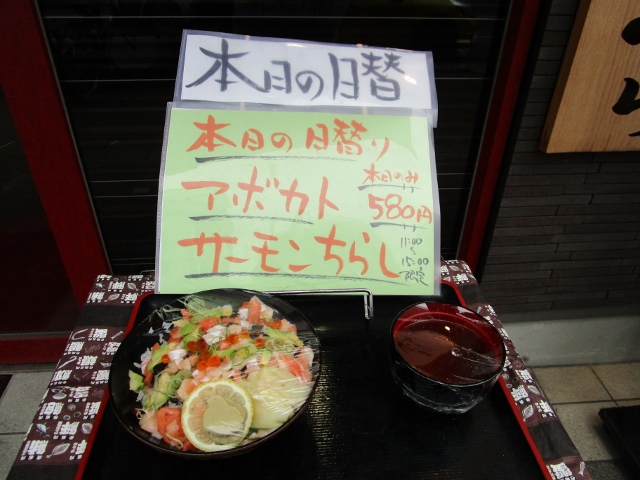 本日の日替
本日の日替り
アボカト
本日のみ
580円
サーモンちらし
11:00
〜
15:00
限定